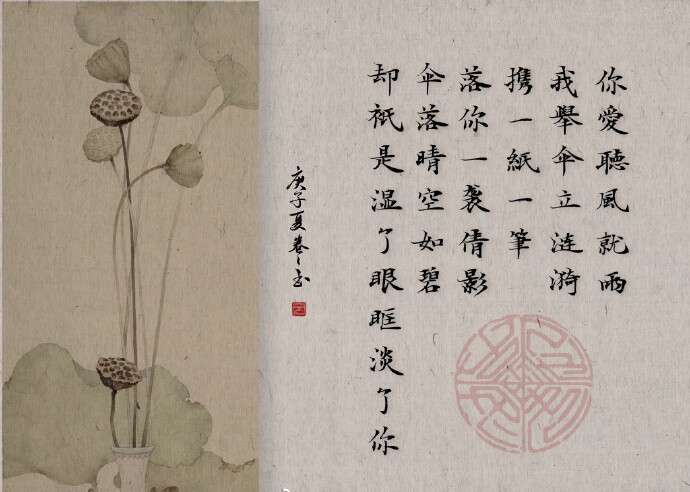 你愛聽風就雨
我舉傘立漣漪
携一紙一筆
落你一袭倩影
伞落晴空如碧
却衹是温了眼眶淡了你
庚子夏卷〻书